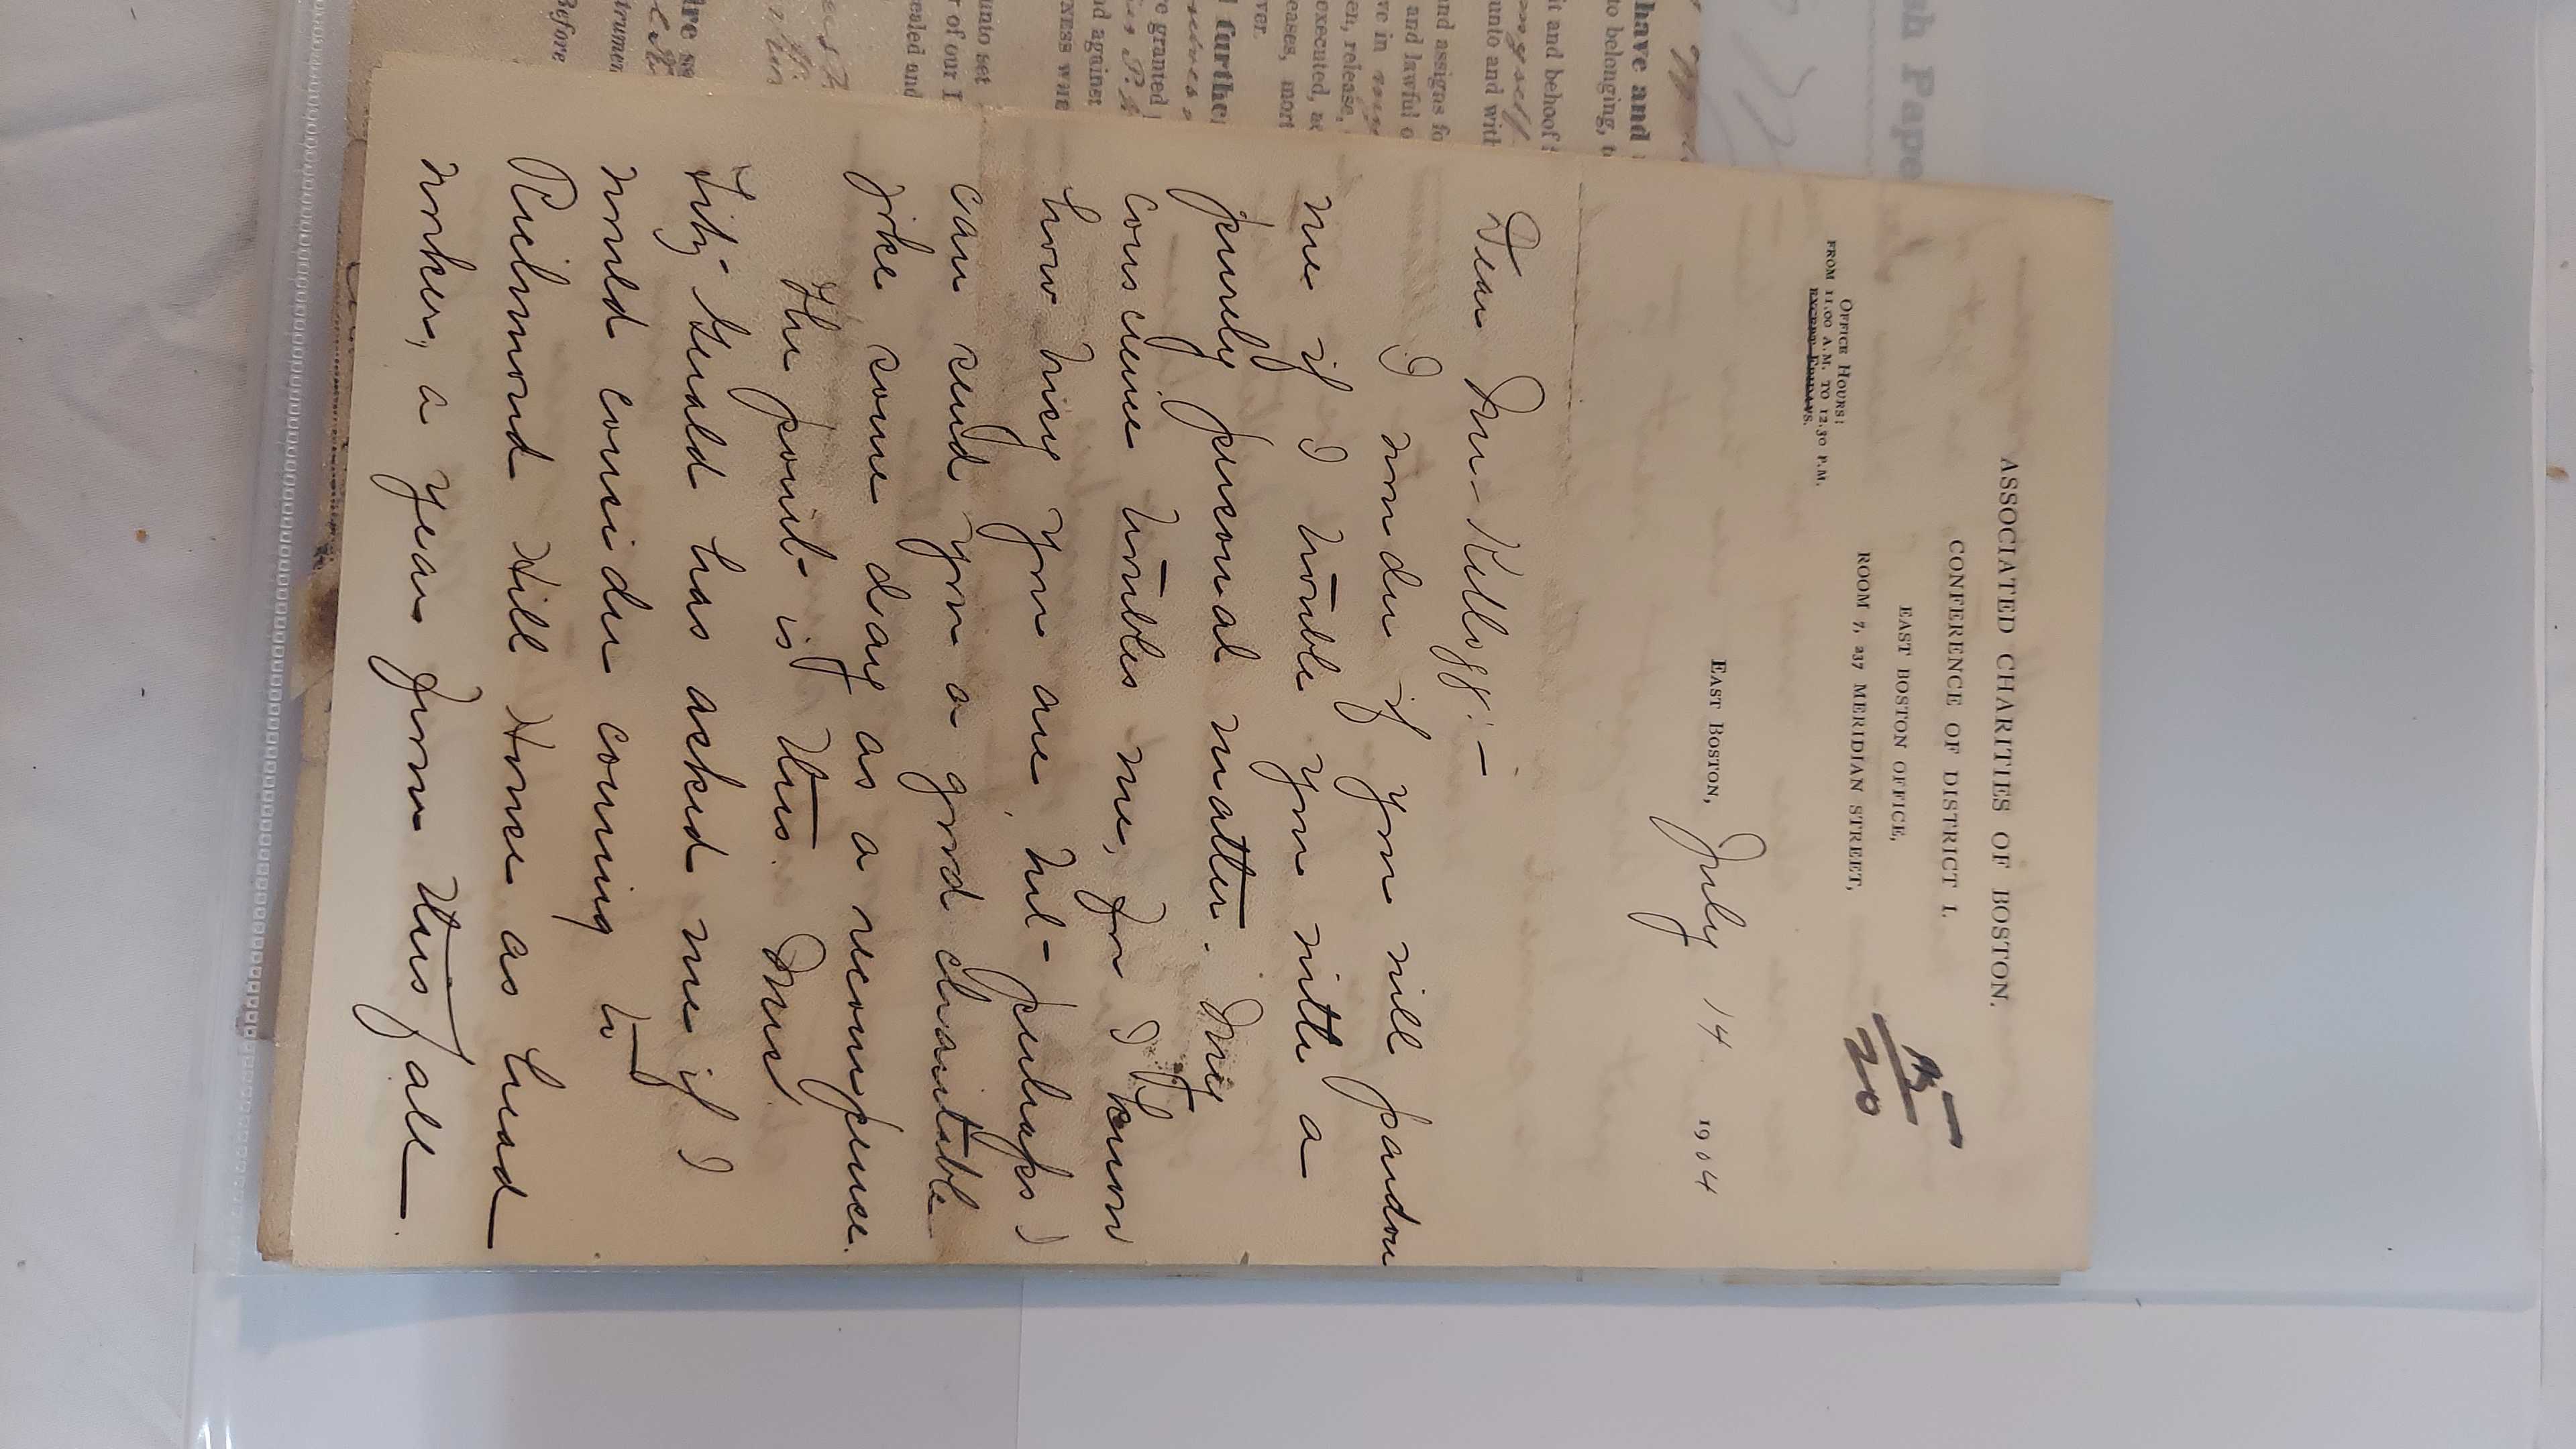 ASSOCIATED CHARITIES OF BOSTON.
CONFERENCE OF DISTRICT I.
EAST BOSTON OFFICE,
ROOM 7, 237 MERIDIAN STREET,
OFFICE HOURS:
FROM 11.00 A.M. TO 12.30 P.M.
EXCEPT FRIDAYS.
15-
20
EAST BOSTON, July 14 1904
Dear Mr. Kellogg:-
I wonder if you will pardon
me if I trouble you with a
purely personal matter. My
conscience troubles me, for I know
how busy you are, but perhaps I
can send you a good charitable
joke some day as a recompence.
The point is this. Mrs.
Fitz-Gerald has asked me if I
would consider coming to
Richmond Hill House as head
worker, a year from this fall.
sh Pape
have and
to belonging, t
it and behoof
myself
unto and with
and assigns fo
and lawful o
ve in
en, release,
executed, a
eases, mort
ver.
d further
re granted
nd against
NESS WHE
unto set
r of our L
ealed and
are s
trumen
Before